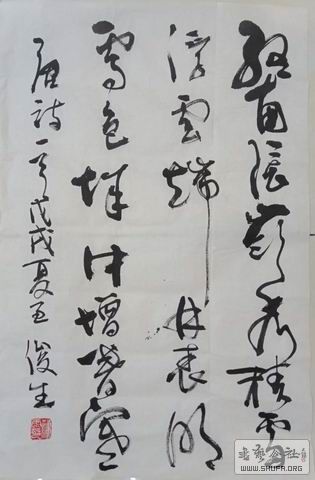 終南陰嶺秀積雪
浮雲端林表明
霽色城中增暮寒
唐詩一首戊戌夏俊生
书艺公社
WWW.SHUFA.ORG